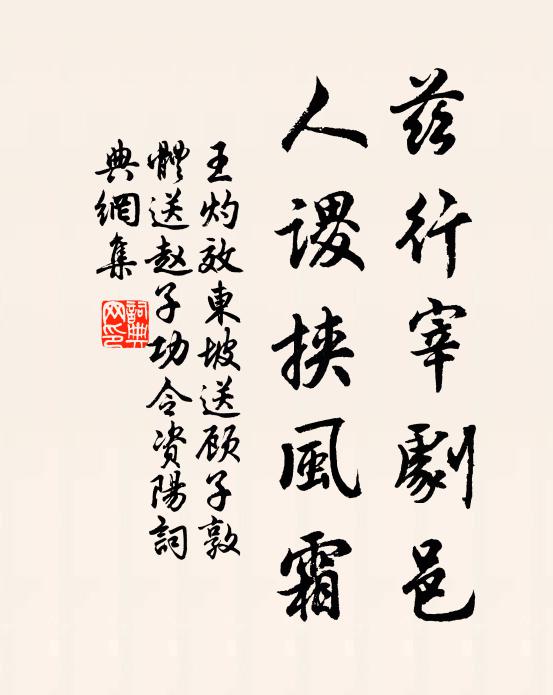 茲行宰劇邑
人謖挾風霜
王灼效東坡送顾子敦
體送赵子功令资陽詞
典網集
詞典
网印